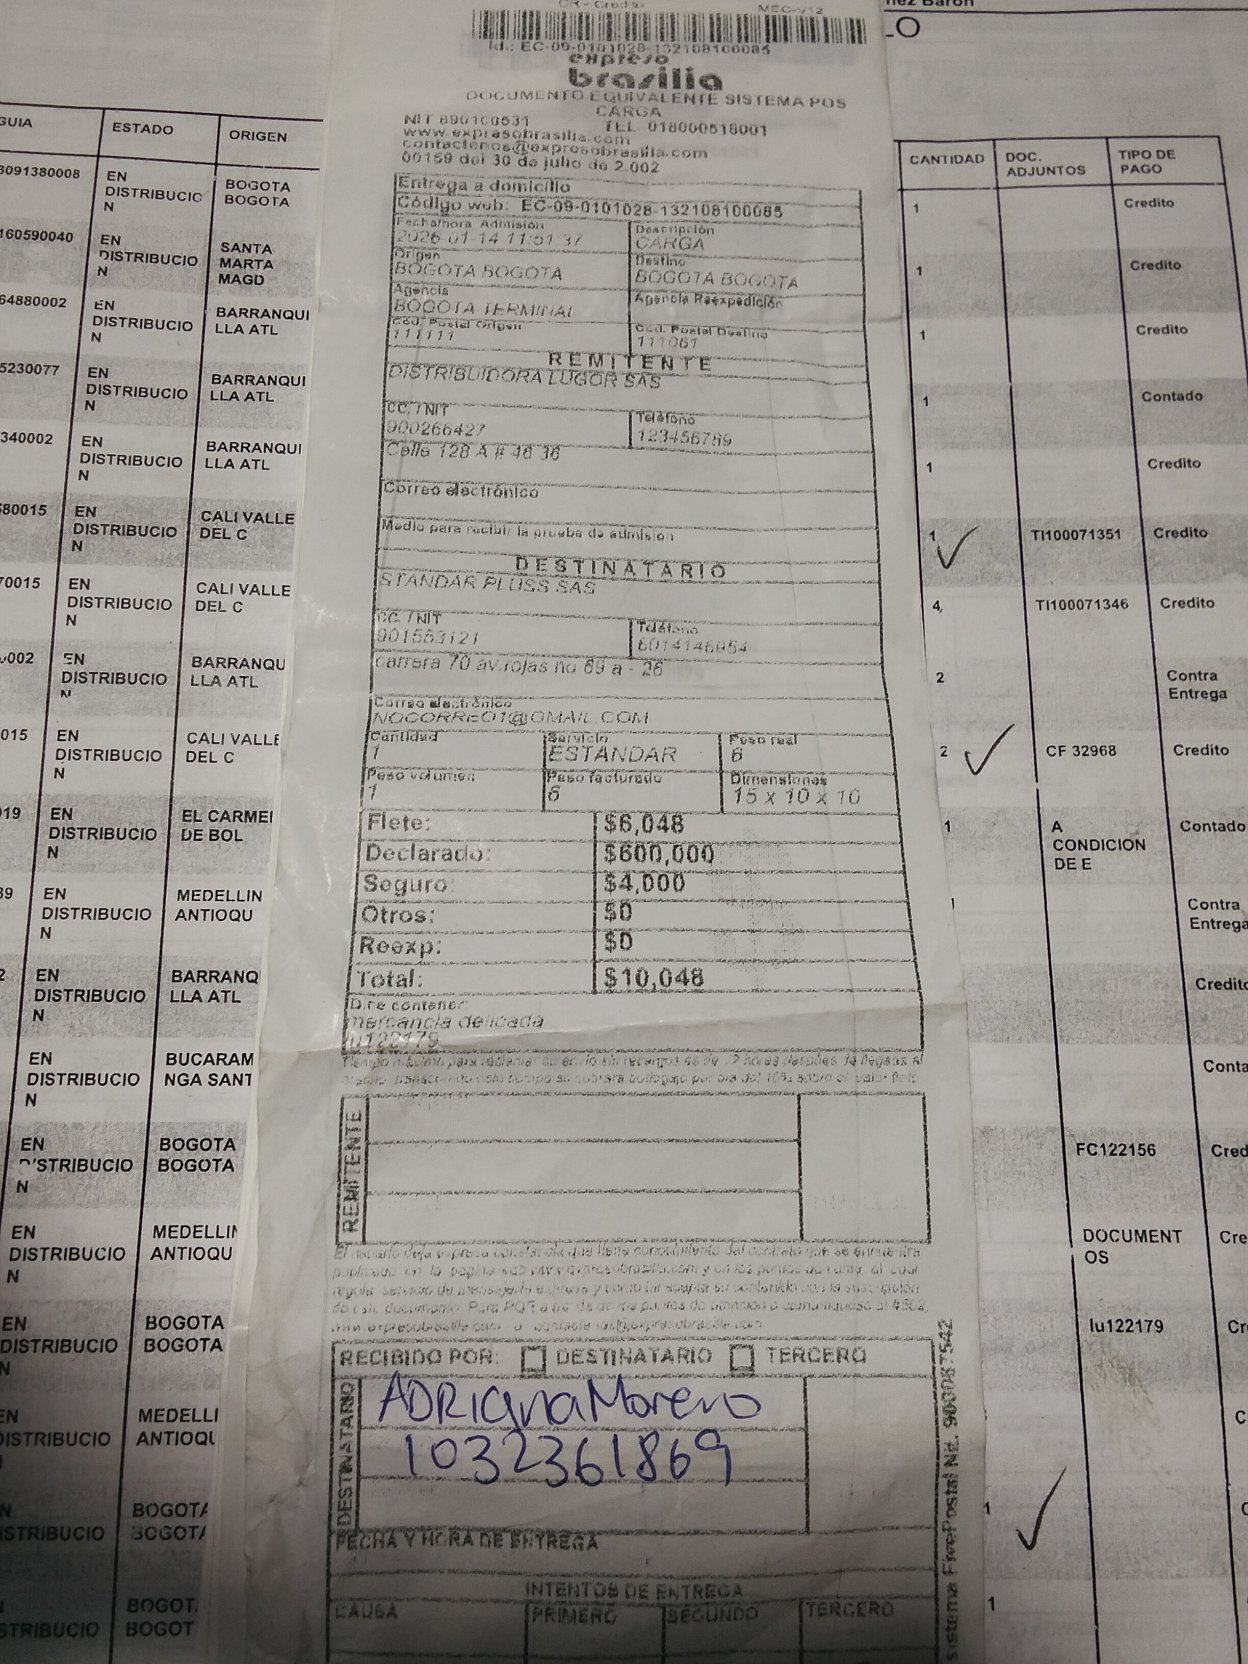 CR - Credito MEC-V12
Id.: EC-09-0101028-132108100085
expreso
brasilia
DOCUMENTO EQUIVALENTE SISTEMA POS
CARGA
NIT 890100531 TEL 018000518001
www.expresobrasilia.com
contactenos@expresobrasilia.com
00159 del 30 de julio de 2.002
Entrega a domicilio
Código web: EC-09-0101028-132108100085
Fecha/hora Admisión Descripción
2026-01-14 11:51:37 CARGA
Origen Destino
BOGOTA BOGOTA BOGOTA BOGOTA
Agencia Agencia Reexpedición
BOGOTA TERMINAL
Cod. Postal Origen Cod. Postal Destino
111111 111061
REMITENTE
DISTRIBUIDORA LUGOR SAS
CC. / NIT Teléfono
900266427 123456789
Calle 128 A # 46 36
Correo electrónico
Medio para recibir la prueba de admisión
DESTINATARIO
STANDAR PLUSS SAS
CC. / NIT Teléfono
901583121 6014146954
carrera 70 av.rojas no 69 a - 26
Correo electrónico
NOCORREO1@GMAIL.COM
Cantidad Servicio Peso real
1 ESTANDAR 6
Peso volumen Peso facturado Dimensiones
1 6 15 x 10 x 10
Flete: $6,048
Declarado: $600,000
Seguro: $4,000
Otros: $0
Reexp: $0
Total: $10,048
Dice contener:
mercancia delicada
lu122179
REMITENTE
RECIBIDO POR: DESTINATARIO TERCERO
DESTINATARIO
ADRIana Moreno
1032361869
FECHA Y HORA DE ENTREGA
INTENTOS DE ENTREGA
CAUSA PRIMERO SEGUNDO TERCERO
GUIA ESTADO ORIGEN
3091380008 EN DISTRIBUCIO N BOGOTA BOGOTA
160590040 EN DISTRIBUCIO N SANTA MARTA MAGD
64880002 EN DISTRIBUCIO N BARRANQUI LLA ATL
5230077 EN DISTRIBUCIO N BARRANQUI LLA ATL
340002 EN DISTRIBUCIO N BARRANQUI LLA ATL
580015 EN DISTRIBUCIO N CALI VALLE DEL C
70015 EN DISTRIBUCIO N CALI VALLE DEL C
002 EN DISTRIBUCIO N BARRANQU LLA ATL
015 EN DISTRIBUCIO N CALI VALLE DEL C
019 EN DISTRIBUCIO N EL CARMEN DE BOL
39 EN DISTRIBUCIO N MEDELLIN ANTIOQU
2 EN DISTRIBUCIO N BARRANQ LLA ATL
EN DISTRIBUCIO N BUCARAM NGA SANT
EN DISTRIBUCIO N BOGOTA BOGOTA
EN DISTRIBUCIO N MEDELLIN ANTIOQU
EN DISTRIBUCIO N BOGOTA BOGOTA
EN DISTRIBUCIO N MEDELLI ANTIOQU
BOGOTA BOGOTA
BOGOT BOGOT
CANTIDAD DOC. ADJUNTOS TIPO DE PAGO
1 Credito
1 Credito
1 Credito
1 Contado
1 Credito
1 TI100071351 Credito
4 TI100071346 Credito
2 Contra Entrega
2 CF 32968 Credito
1 A CONDICION DE E Contado
1 Contra Entrega
Credito
Conta
FC122156 Cred
DOCUMENT OS Cre
lu122179 Cr
1
1